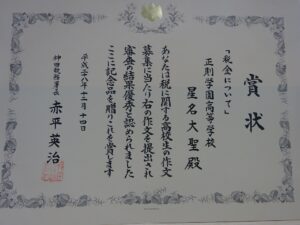 賞状
「税金について」
正則学園高等学校
星名大聖殿
あなたは税に関する高校生の作文
募集に当たり右の作文を提出され
審査の結果優秀と認められました
ここに記念品を贈りこれを賞します
平成二十八年十一月十四日
神田税務署長 赤平英治